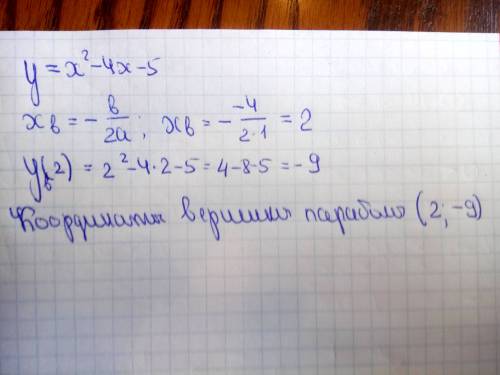 y = x² - 4x - 5
xв = - в/2a ; xв = - -4/2·1 = 2
yв(2) = 2² - 4·2 - 5 = 4 - 8 - 5 = -9
Координаты вершины параболы (2; -9)